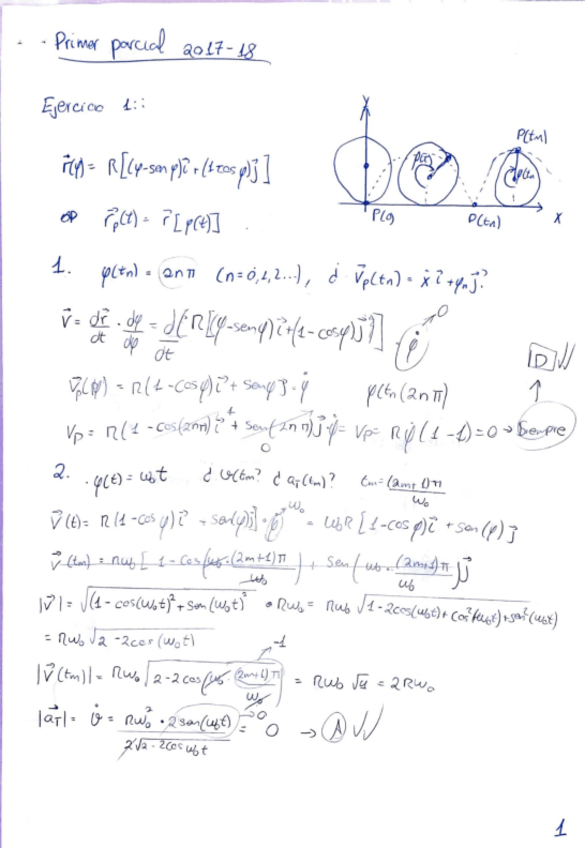 Primer parcial 2017-18
Ejercicio 1::
Y
P(0)
P(tn)
P(tm)
X
r⃗(φ) = R[(φ-senφ)i⃗+(1-cosφ)j⃗]
OP r⃗p(t) = r⃗[φ(t)]
1. φ(tn) = 2nπ (n=0,1,2...), ¿ v⃗p(tn) = ẋi⃗+ẏj⃗?
v⃗ = dr⃗/dt · dφ/dφ = d/dt {R[(φ-senφ)i⃗+(1-cosφ)j⃗]} φ̇ → 0
v⃗p(φ) = R(1-cosφ)i⃗ + senφj⃗ · φ̇ φ(tn(2nπ)
Vp = R(1-cos(2nπ)i⃗ + sen(2nπ)j⃗φ̇ = Vp = Rφ̇(1-1)=0 → Siempre ↑ D
2. φ(t) = ω₀t ¿v(tm? ¿aT(tm)? tm = (2m+1)π/ω₀
v⃗(t) = R(1-cosφ)i⃗ + sen(φ)j⃗] φ̇ → ω₀ = ω₀R[1-cosφ)i⃗ + sen(φ)j⃗
v⃗(tm) = Rω₀[1-cos(ω₀·(2m+1)π/ω₀) + sen(ω₀·(2m+1)π/ω₀)j⃗
|v⃗| = √(1-cos(ω₀t)²+sen(ω₀t)² · Rω₀ = Rω₀√1-2cos(ω₀t)+cos²(ω₀t)+sen²(ω₀t)
= Rω₀√2-2cos(ω₀t)
|v⃗(tm)| = Rω₀√2-2cos(ω₀·(2m+1)π/ω₀) → -1 = Rω₀√4 = 2Rω₀
|a⃗T| = v̇ = Rω₀²·2sen(ω₀t)/2√2-2cosω₀t → 0 = 0 → A
1